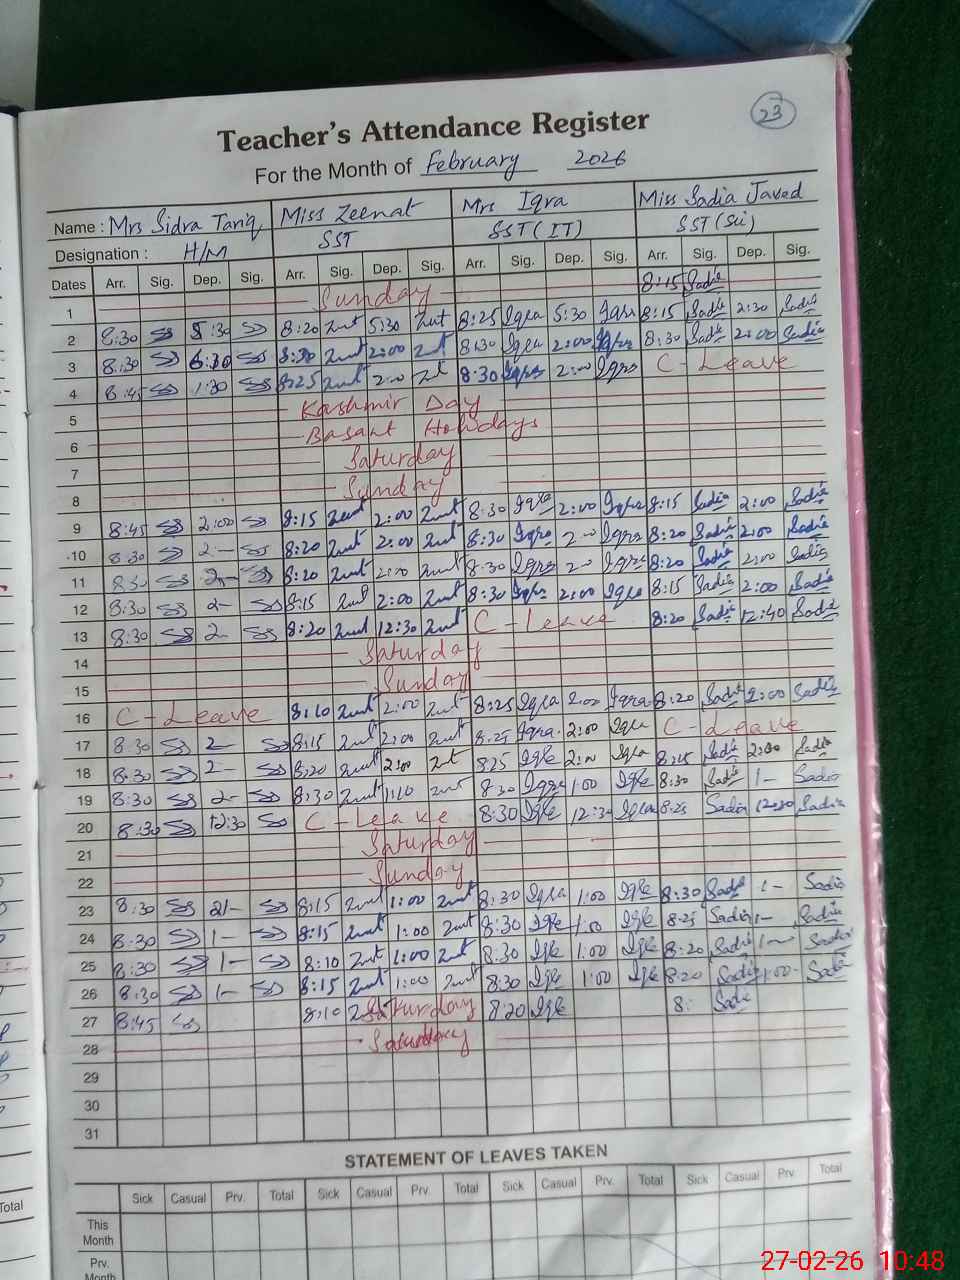 23
Teacher's Attendance Register
For the Month of February 2026
Name : Mrs Sidra Tariq Miss Zeenat Mrs Iqra Miss Sadia Javed
Designation : H/M SST SST (IT) SST (Sci)
Dates Arr. Sig. Dep. Sig. Arr. Sig. Dep. Sig. Arr. Sig. Dep. Sig. Arr. Sig. Dep. Sig.
1 Sunday 8:15 Sadia
2 8:30 5:30 8:20 5:30 8:25 Iqra 5:30 Iqra 8:15 Sadia 2:30 Sadia
3 8:30 2:00 8:30 Iqra 2:00 Iqra 8:30 Sadia 2:00 Sadia
4 8:45 1:30 8:25 2:00 8:30 Iqra 2:00 Iqra C-Leave
5 Kashmir Day
6 Basant Holidays
7 Saturday
8 Sunday
9 8:45 2:00 8:15 2:00 8:30 Iqra 2:00 Iqra 8:15 Sadia 2:00 Sadia
10 8:30 2- 8:20 2:00 8:30 Iqra 2:00 Iqra 8:20 Sadia 2:00 Sadia
11 8:30 2- 8:20 2:00 8:30 Iqra 2:00 Iqra 8:20 Sadia 2:00 Sadia
12 8:30 2- 8:15 2:00 8:30 Iqra 2:00 Iqra 8:15 Sadia 2:00 Sadia
13 8:30 2- 8:20 12:30 C-Leave 8:20 Sadia 12:40 Sadia
14 Saturday
15 Sunday
16 C-Leave 8:10 2:00 8:25 Iqra 2:00 Iqra 8:20 Sadia 2:00 Sadia
17 8:30 2- 8:15 2:00 8:25 Iqra 2:00 Iqra C-Leave
18 8:30 2- 8:20 2:00 8:25 Iqra 2:00 Iqra 8:15 Sadia 2:00 Sadia
19 8:30 2- 8:30 1:10 8:30 Iqra 1:00 Iqra 8:30 Sadia 1- Sadia
20 8:30 12:30 C-Leave 8:30 Iqra 12:30 Iqra 8:25 Sadia 12:30 Sadia
21 Saturday
22 Sunday
23 8:30 8:15 1:00 8:30 Iqra 1:00 Iqra 8:30 Sadia 1- Sadia
24 8:30 1- 8:15 1:00 8:30 Iqra 1:00 Iqra 8:25 Sadia 1- Sadia
25 8:30 1- 8:10 1:00 8:30 Iqra 1:00 Iqra 8:20 Sadia 1- Sadia
26 8:30 1- 8:15 1:00 8:30 Iqra 1:00 Iqra 8:20 Sadia 1:00 Sadia
27 8:45 8:10 Saturday 8:20 Iqra 8: Sadia
28 Saturday
29
30
31
STATEMENT OF LEAVES TAKEN
Sick Casual Prv. Total Sick Casual Prv. Total Sick Casual Prv. Total Sick Casual Prv. Total
This
Month
Prv.
Month
Total
27-02-26 10:48